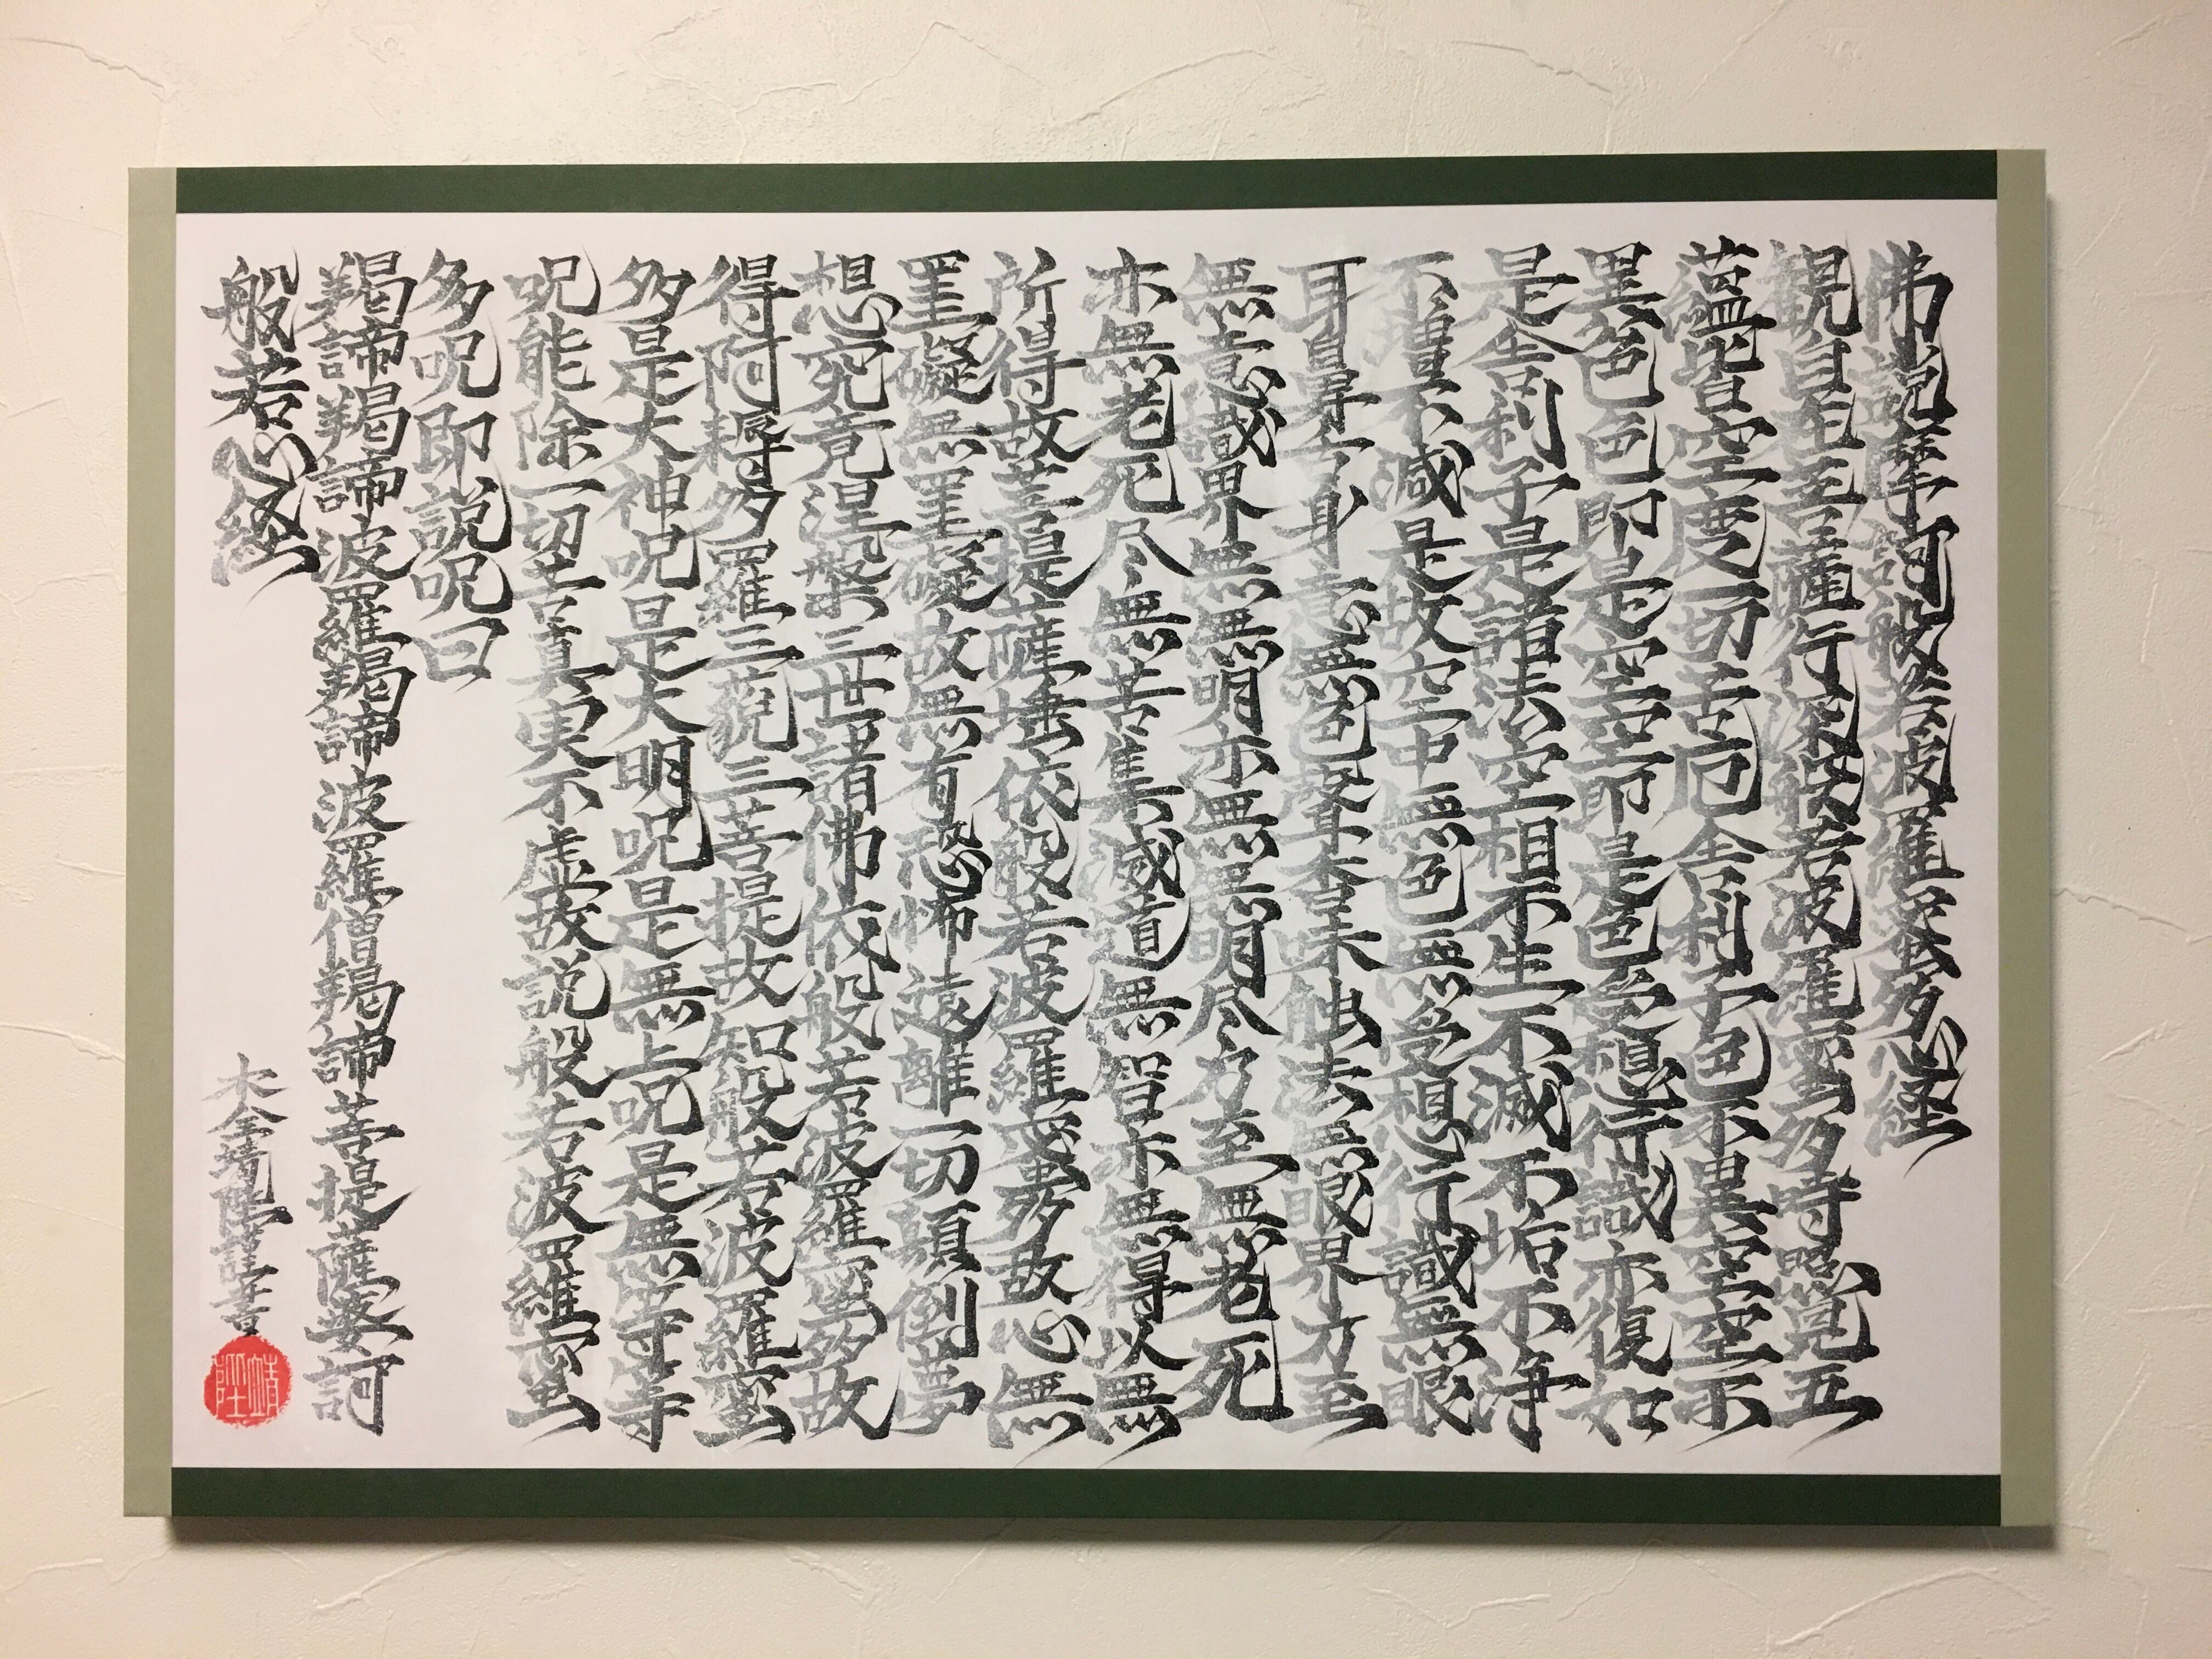 佛説摩訶般若波羅蜜多心経
観自在菩薩行深般若波羅蜜多時照見五
蘊皆空度一切苦厄舎利子色不異空空不
異色色即是空空即是色受想行識亦復如
是舎利子是諸法空相不生不滅不垢不浄
不増不減是故空中無色無受想行識無眼
耳鼻舌身意無色聲香味触法無眼界乃至
無意識界無無明亦無無明尽乃至無老死
亦無老死尽無苦集滅道無智亦無得以無
所得故菩提薩埵依般若波羅蜜多故心無
罣礙無罣礙故無有恐怖遠離一切顛倒夢
想究竟涅槃三世諸佛依般若波羅蜜多故
得阿耨多羅三藐三菩提故知般若波羅蜜
多是大神呪是大明呪是無上呪是無等等
呪能除一切苦真実不虚故説般若波羅蜜
多呪即説呪曰
羯諦羯諦波羅羯諦波羅僧羯諦菩提薩婆訶
般若心経